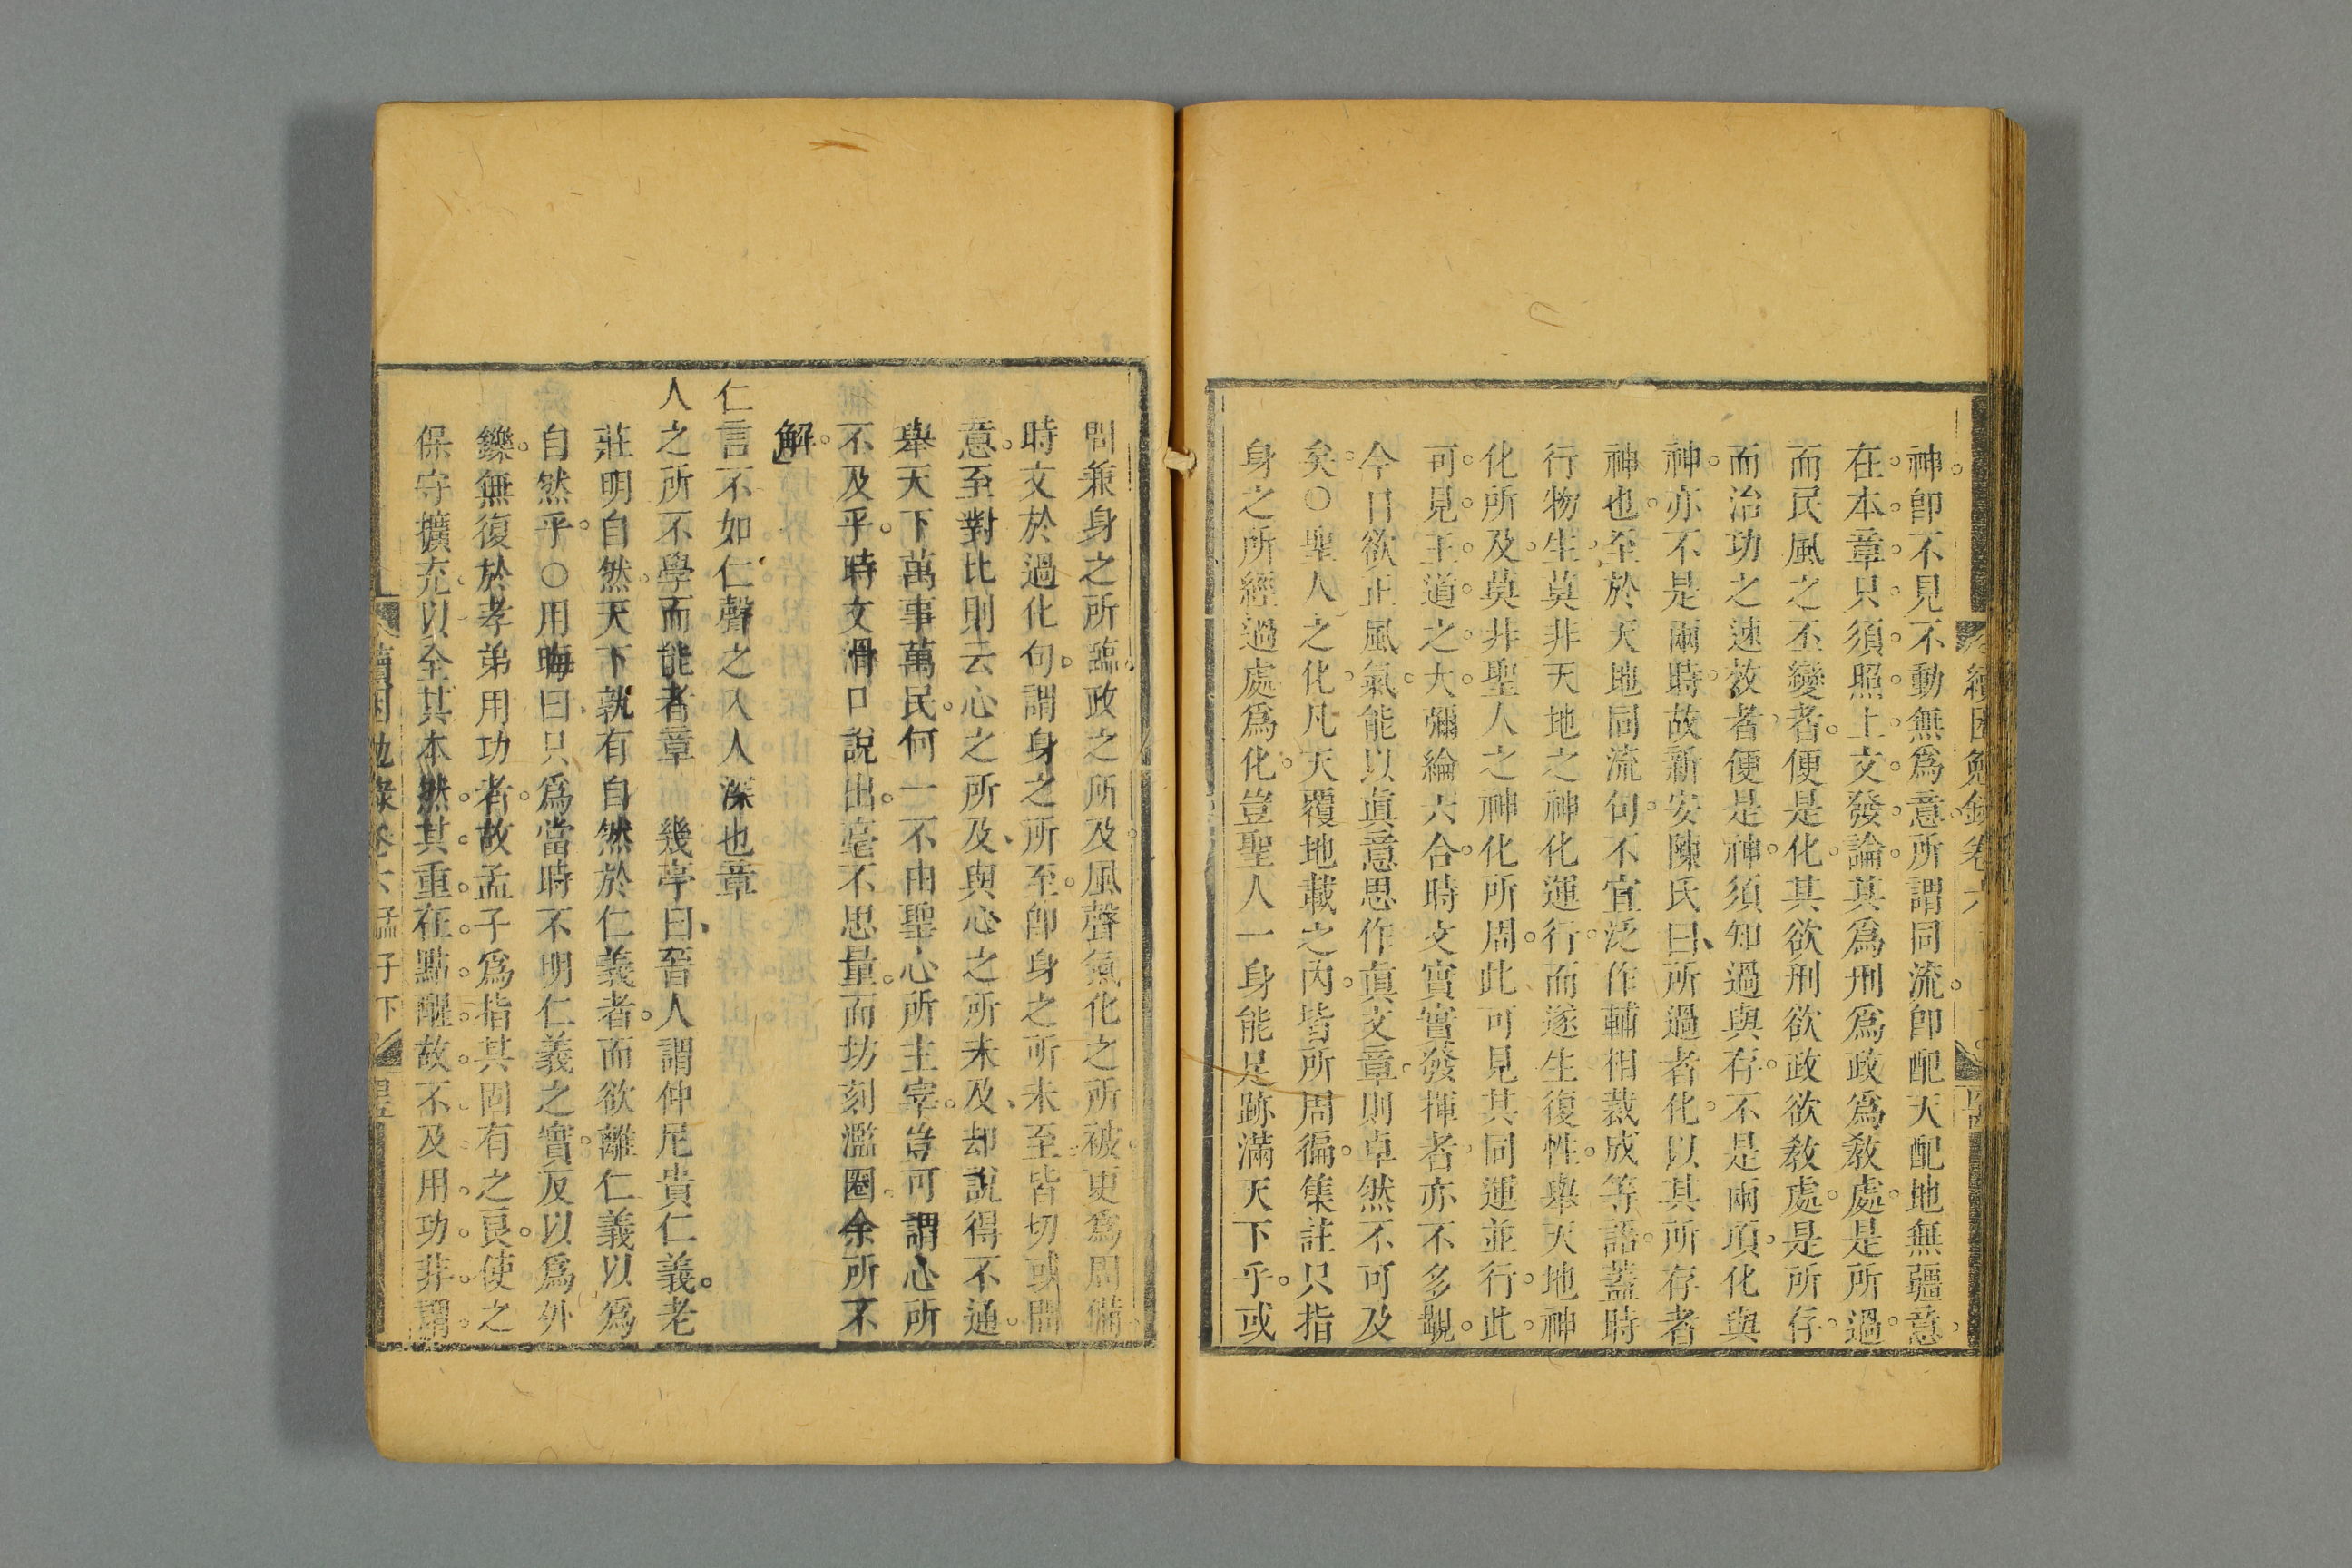 續困勉錄卷六
神卽不見不動無爲意所謂同流卽配天配地無疆意
在本章只須照上文發論其爲刑爲政爲敎處是所過
而民風之丕變者便是化其欲刑欲政欲敎處是所存
而治功之速效者便是神須知過與存不是兩項化與
神亦不是兩時故新安陳氏曰所過者化以其所存者
神也至於天地同流句不宜泛作輔相裁成等語蓋時
行物生莫非天地之神化運行而遂生復性舉天地神
化所及莫非聖人之神化所周此可見其同運並行此
可見王道之大彌綸大合時文實實發揮者亦不多覯
今日欲正風氣能以眞意思作眞文章則卓然不可及
矣○聖人之化凡天覆地載之內皆所周徧集註只指
身之所經過處爲化豈聖人一身能足跡滿天下乎或
問兼身之所臨政之所及風聲氣化之所被更爲周備
時文於過化句謂身之所至卽身之所未至皆切或問
意至對比則云心之所及與心之所未及却說得不通
舉天下萬事萬民何一不由聖心所主宰豈可謂心所
不及乎時文滑口說出毫不思量而坊刻濫圈余所不
解
仁言不如仁聲之入人深也章
人之所不學而能者章　幾亭曰晉人謂仲尼貴仁義老
莊明自然天下孰有自然於仁義者而欲離仁義以爲
自然乎○用晦曰只爲當時不明仁義之實反以爲外
鑠無復於孝弟用功者故孟子爲指其固有之良使之
保守擴充以全其本然其重在點醒故不及用功非謂
續困勉錄卷六孟子下